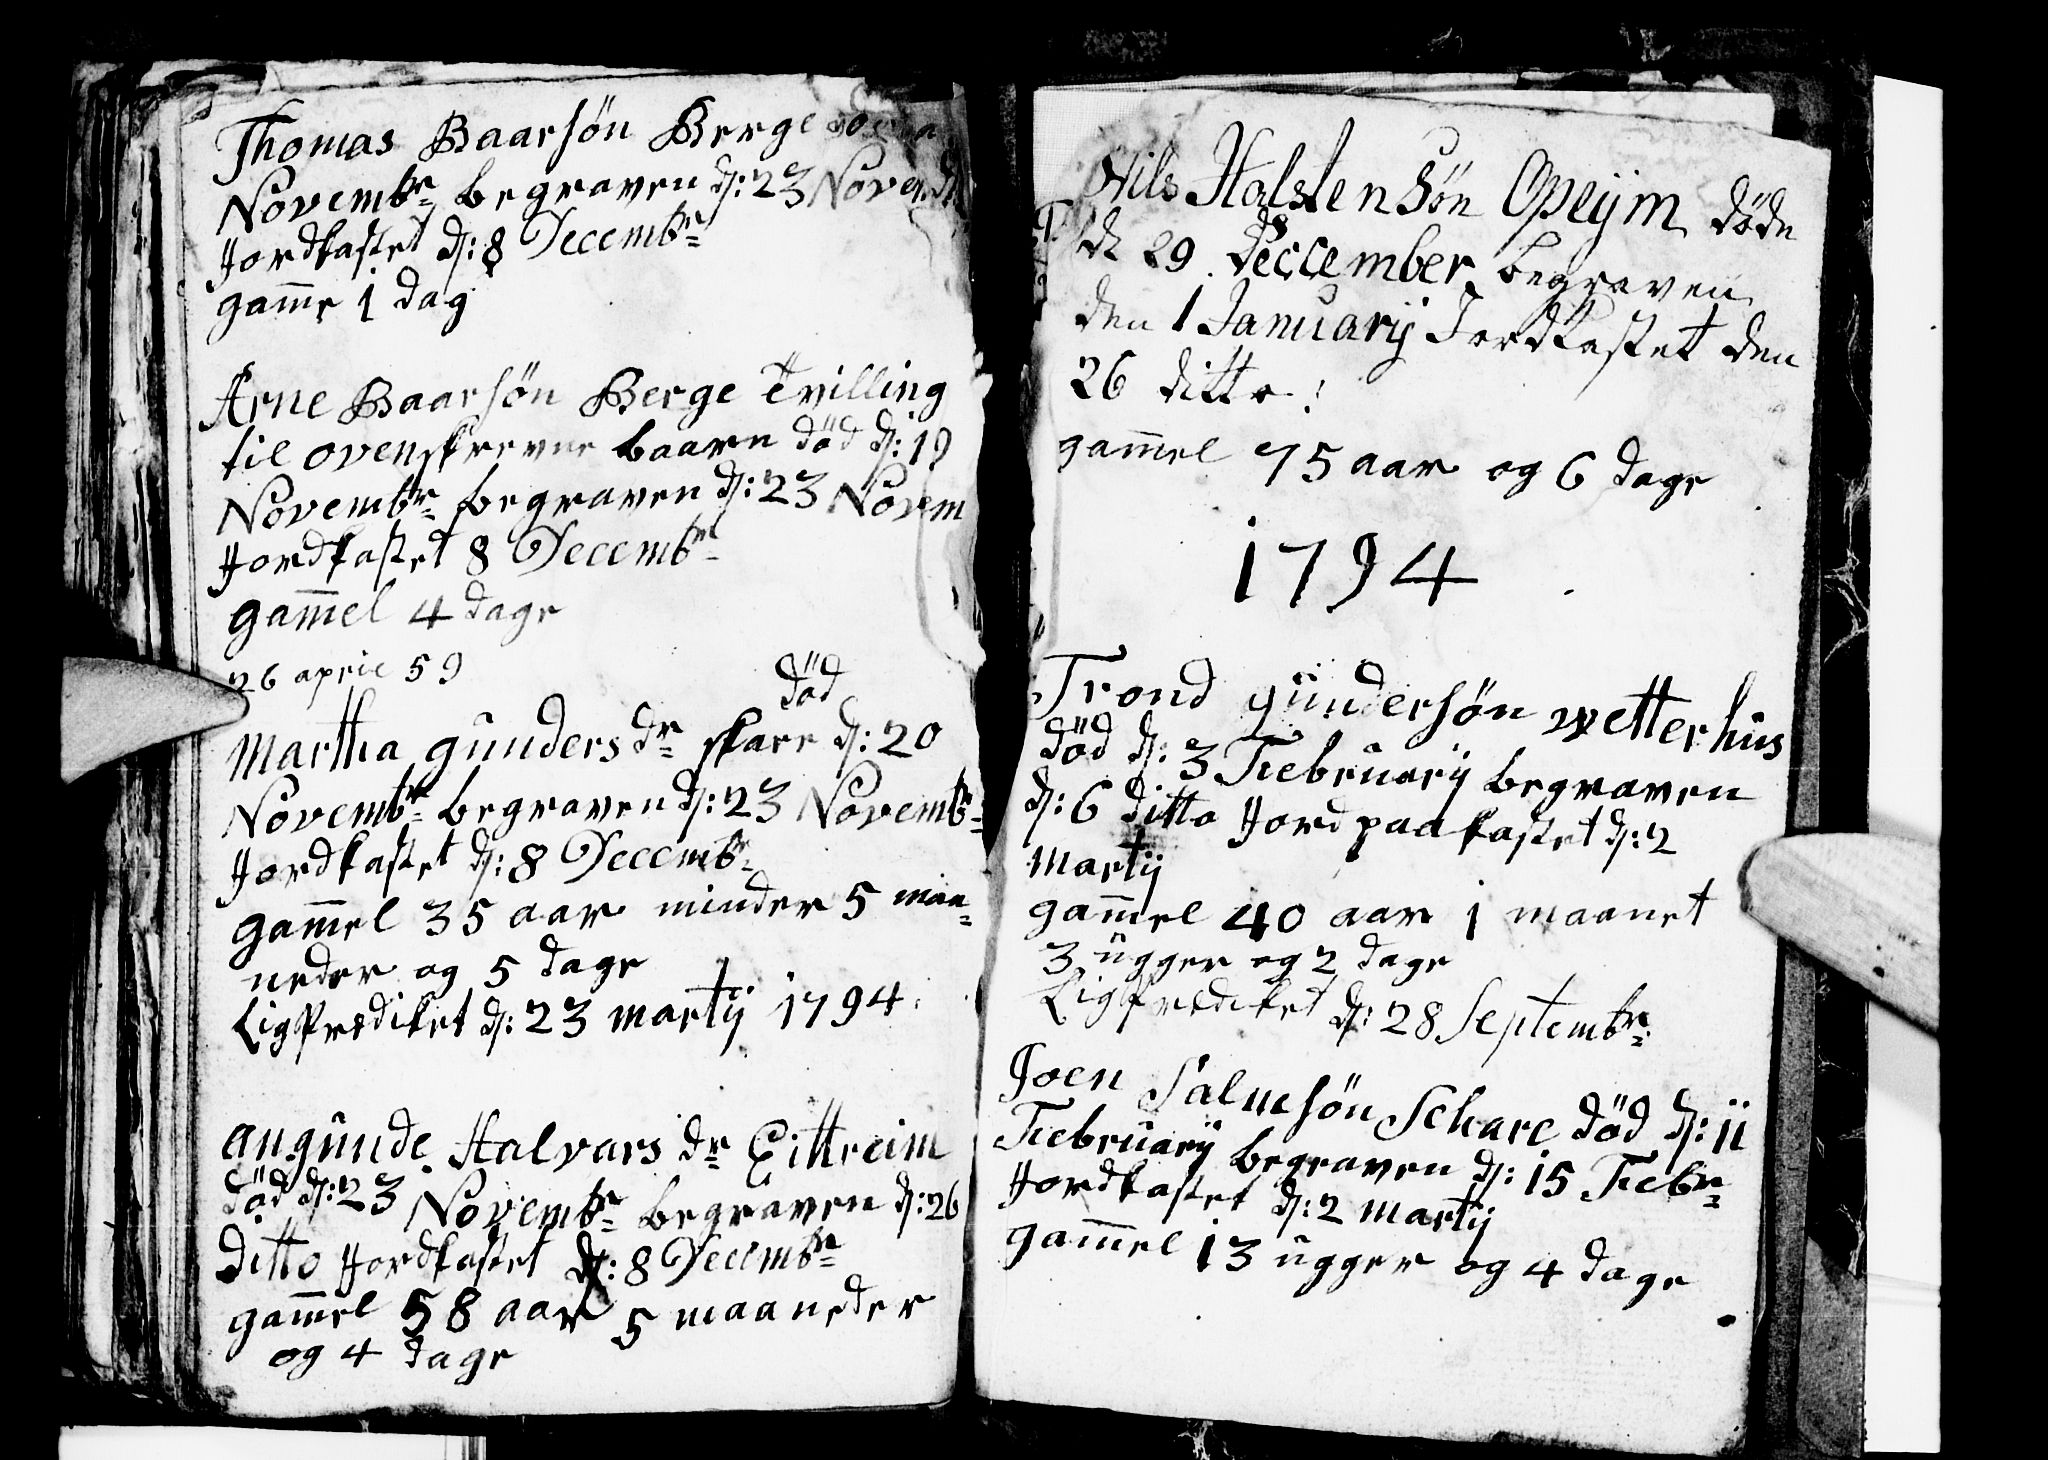 Thomas Baarsøn Berge
Novembr begraven d: 23 Novem
Jordkastet d: 8 Decembr
gam̅e 1 dag
Arne Baarsøn Berge Tvilling
til ovenskrevne baarn död d: 19
Novembr begraven d: 23 Novem
Jordkastet 8 Decembr
gam̅el 4 dage
26 april 59
död
Martha gunders dr skare d: 20
Novembr begraven d: 23 Novembr
Jordkastet d: 8 Decembr
gam̅el 35 aar minder 5 maa=
neder og 5 dage
Ligprediket d: 23 martij 1794
angunde Halvars dr Eittreim
död d: 23 Novembr begraven d: 26
Ditto Jordkastet d: 8 Decembr
gam̅el 58 aar 5 maaneder
og 4 dage
Nils Halstensön Opeijm döde
29 December begraven
den 1 Januarij Jordkastet den
26 ditto
gam̅el 75 aar og 6 dage
1794
Trond gündersön wetterhus
död d: 3 Februarij begraven
d: 6 ditto Jord paa kastet d: 2
martij
gam̅el 40 aar 1 maanet
3 ugger og 2 dage
Ligprediket d: 28 Septembr
Joen Salmesön Schare död d: 11
Februarij begraven d: 15 Febr
Jordkastet d: 2 martij
gam̅el 13 ugger og 4 dage